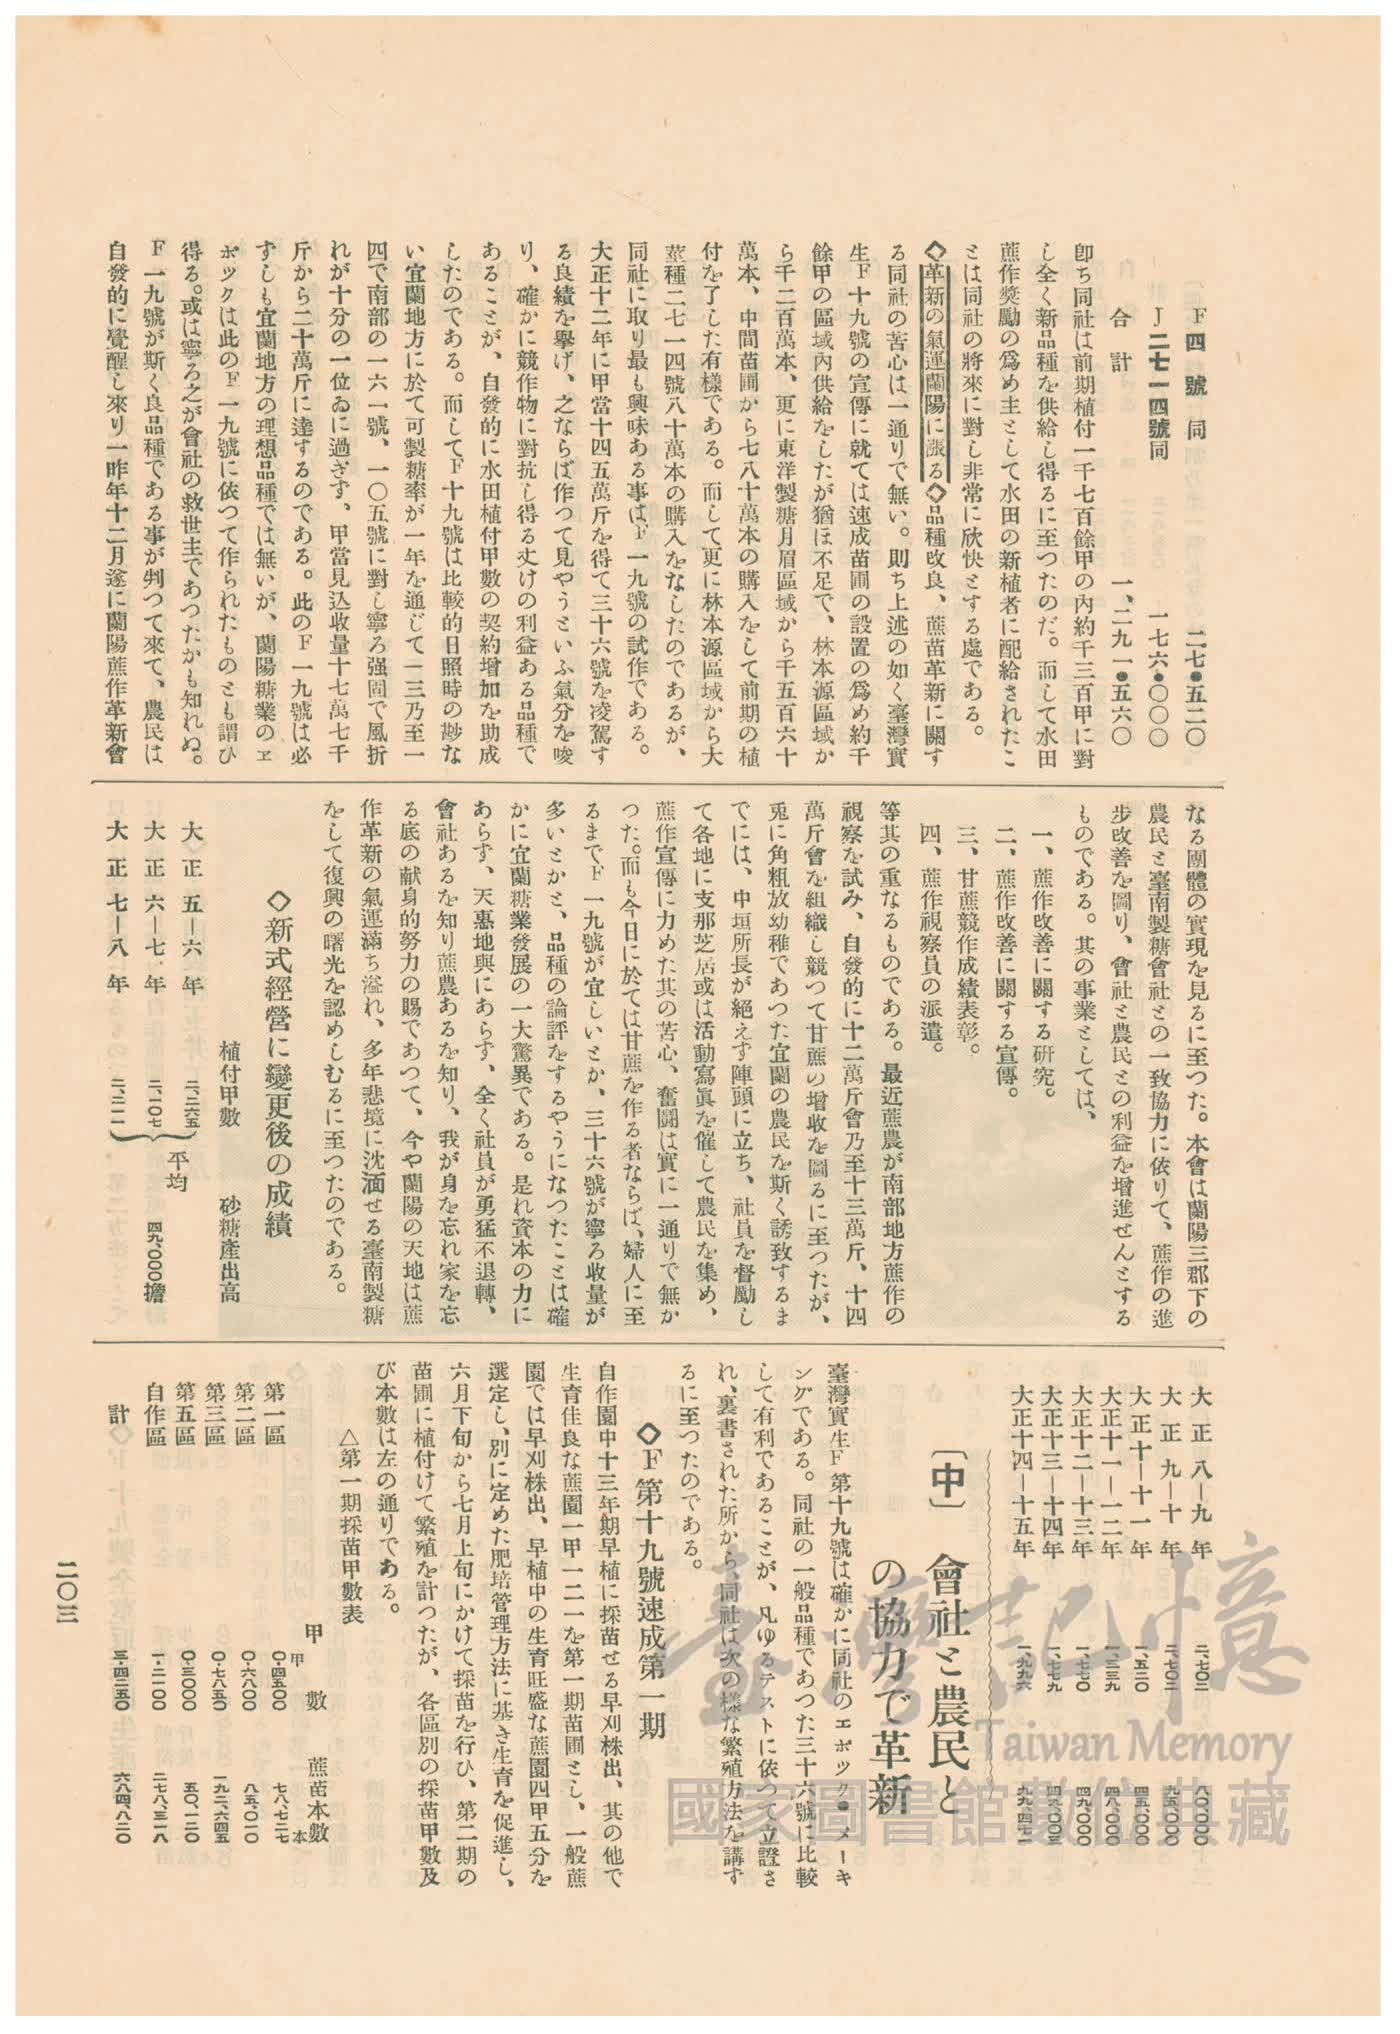 F四號 同 二七•五二〇
J二七一四號同 一七六•〇〇〇
合計 一、二九一•五六〇
卽ち同社は前期植付一千七百餘甲の內約千三百甲に對
し全く新品種を供給し得るに至つたのだ。而して水田
蔗作奬勵の爲め主として水田の新植者に配給されたこ
とは同社の將來に對し非常に欣快とする處である。
◇革新の氣運蘭陽に漲る◇品種改良、蔗苗革新に關す
る同社の苦心は一通りで無い。則ち上述の如く臺灣實
生F十九號の宣傳に就ては速成苗圃の設置の爲め約千
餘甲の區域內供給をしたが猶ほ不足で、林本源區域か
ら千二百萬本、更に東洋製糖月眉區域から千五百六十
萬本、中間苗圃から七八十萬本の購入をして前期の植
付を了した有樣である。而して更に林本源區域から大
莖種二七一四號八十萬本の購入をなしたのであるが、
同社に取り最も興味ある事はF一九號の試作である。
大正十二年に甲當十四五萬斤を得て三十六號を凌駕す
る良績を擧げ、之ならば作つて見やうといふ氣分を唆
り、確かに競作物に對抗し得る丈けの利益ある品種で
あることが、自發的に水田植付甲數の契約增加を助成
したのである。而してF十九號は比較的日照時の尠な
い宜蘭地方に於て可製糖率が一年を通じて一三乃至一
四で南部の一六一號、一〇五號に對し寧ろ强固で風折
れが十分の一位ゐに過ぎず、甲當見込收量十七萬七千
斤から二十萬斤に達するのである。此のF一九號は必
ずしも宜蘭地方の理想品種では無いが、蘭陽糖業のエ
ポツクは此のF一九號に依つて作られたものとも謂ひ
得る。或は寧ろ之が會社の救世主であつたかも知れぬ。
F一九號が斯く良品種である事が判つて來て、農民は
自發的に覺醒し來り一昨年十二月遂に蘭陽蔗作革新會
なる團體の實現を見るに至つた。本會は蘭陽三郡下の
農民と臺南製糖會社との一致協力に依りて、蔗作の進
步改善を圖り、會社と農民との利益を增進せんとする
ものである。其の事業としては、
一、蔗作改善に關する硏究。
二、蔗作改善に關する宣傳。
三、甘蔗競作成績表彰。
四、蔗作視察員の派遣。
等其の重なるものである。最近蔗農が南部地方蔗作の
視察を試み、自發的に十二萬斤會乃至十三萬斤、十四
萬斤會を組織し競つて甘蔗の增收を圖るに至つたが、
兎に角粗放幼稚であつた宜蘭の農民を斯く誘致するま
でには、中垣所長が絕えず陣頭に立ち、社員を督勵し
て各地に支那芝居或は活動寫眞を催して農民を集め、
蔗作宣傳に力めた其の苦心、奮鬪は實に一通りで無か
つた。而も今日に於ては甘蔗を作る者ならば、婦人に至
るまでF一九號が宜しいとか、三十六號が寧ろ收量が
多いとかと、品種の論評をするやうになつたことは確
かに宜蘭糖業發展の一大驚異である。是れ資本の力に
あらず、天惠地與にあらず、全く社員が勇猛不退轉、
會社あるを知り蔗農あるを知り、我が身を忘れ家を忘
る底の献身的努力の賜であつて、今や蘭陽の天地は蔗
作革新の氣運滿ち溢れ、多年悲境に沈湎せる臺南製糖
をして復興の曙光を認めしむるに至つたのである。
◇新式經營に變更後の成績
植付甲數 砂糖產出高
大正五—六年 二、二六五
大正六—七年 二、一〇七 平均 四九、〇〇〇擔
大正七—八年 二、二一一
大正八—九年 二、七〇二 八〇、〇〇〇
大正九—十年 二、七〇三 九五、〇〇〇
大正十—十一年 一、五二〇 四五、〇〇〇
大正十一—一二年 一、二三九 四八、〇〇〇
大正十二—十三年 一、七七〇 四九、〇〇〇
大正十三—十四年 一、七七九 四九、〇〇三
大正十四—十五年 一、九九六 九九、四七二
〔中〕 會社と農民と
の協力で革新
臺灣實生F第十九號は確かに同社のエポツク•メーキ
ングである。同社の一般品種であつた三十六號に比較
して有利であることが、凡ゆるテストに依つて立證さ
れ、裏書された所から、同社は次の樣な繁殖方法を講ず
るに至つたのである。
◇F第十九號速成第一期
自作園中十三年期早植に採苗せる早刈株出、其の他で
生育佳良な蔗園一甲一二一を第一期苗圃とし、一般蔗
園では早刈株出、早植中の生育旺盛な蔗園四甲五分を
選定し、別に定めた肥培管理方法に基き生育を促進し、
六月下旬から七月上旬にかけて採苗を行ひ、第二期の
苗圃に植付けて繁殖を計つたが、各區別の採苗甲數及
び本數は左の通りである。
△第一期採苗甲數表
甲數 蔗苗本數
第一區 〇•四五〇〇甲 七八、七二七本
第二區 〇•六八〇〇 八五、〇一〇
第三區 〇•七八五〇 一九二、六四五
第五區 〇•三〇〇〇 五〇、一二〇
自作區 一•二一〇〇 二七八、三一八
計 三•四二五〇 六八四、八二〇
二〇三
臺灣記憶
Taiwan Memory
國家圖書館數位典藏